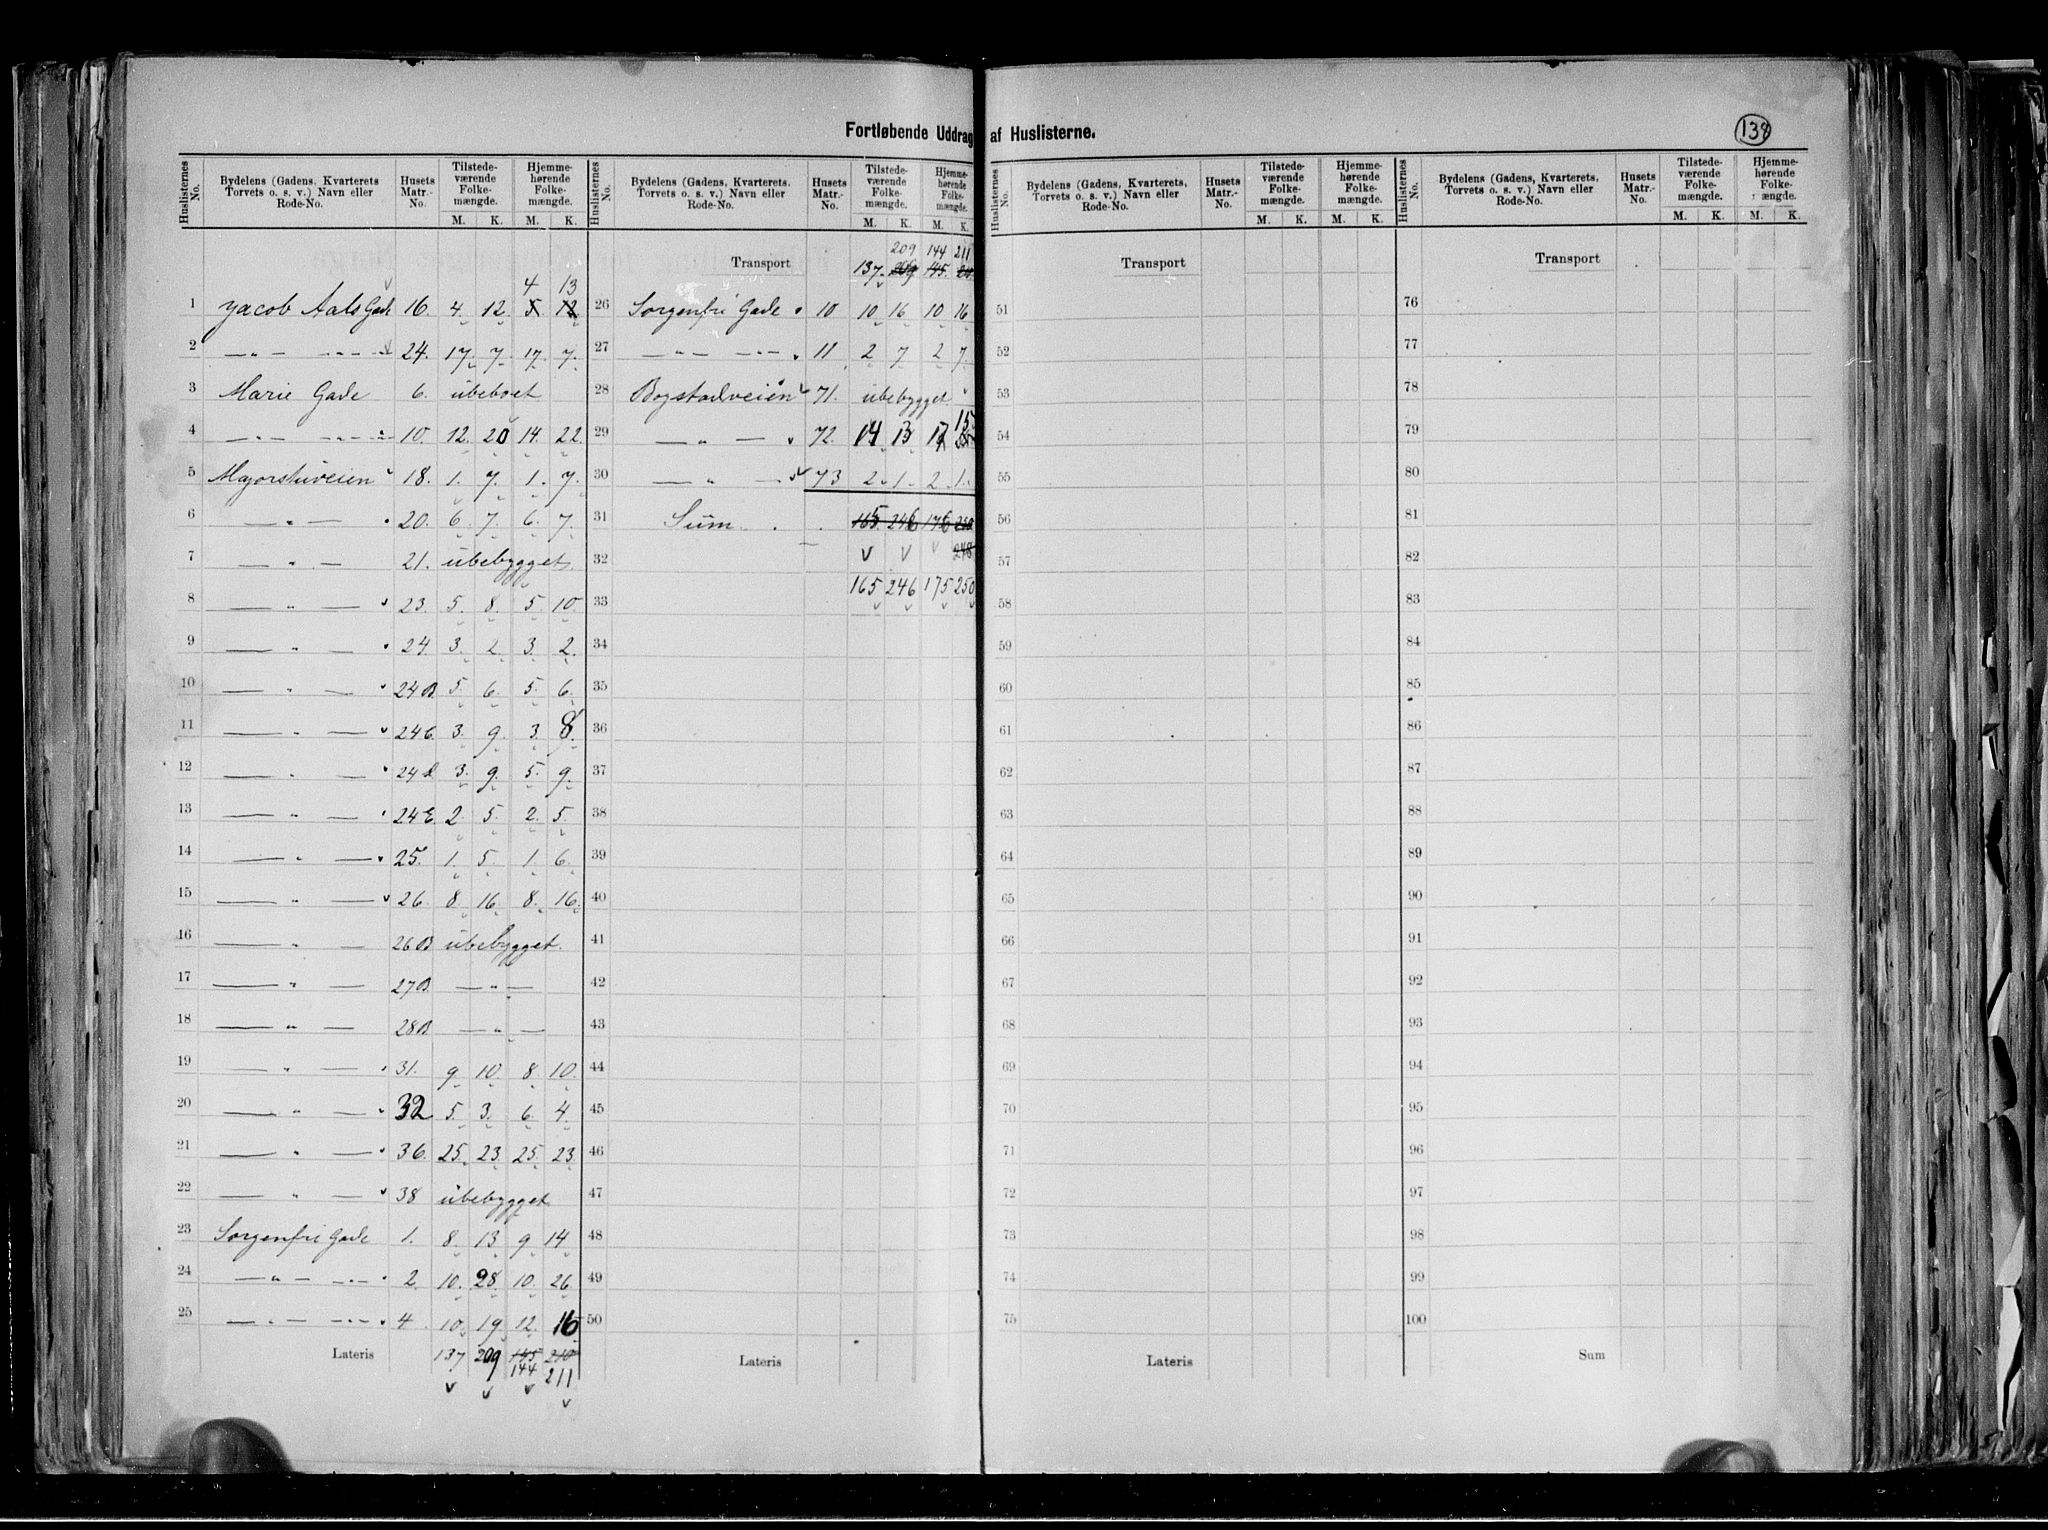 Fortløbende Uddrag af Huslisterne.
138
Huslisternes No. | Bydelens (Gadens, Kvarterets Torvets o. s. v.) Navn eller Rode-No. | Husets Matr.-No. | Tilstedeværende Folkemængde. M. K. | Hjemmehørende Folkemængde. M. K.
1 Jacob Aals Gade 16. 4. 12. 5 12 4 13
2 —„— —„— 24. 17. 7. 17. 7.
3 Marie Gade 6. ubeboet
4 —„— —„— 10. 12. 20 14. 22.
5 Majorstuveien 18. 1. 7. 1. 7.
6 „ — 20. 6. 7. 6. 7.
7 — „ — 21. ubebygget.
8 — „ — 23. 5. 8. 5. 10.
9 — „ — 24. 3. 2. 3. 2.
10 — „ — 24B. 5. 6. 5. 6.
11 — „ — 24C. 3. 9. 3. 8.
12 — „ — 24d. 3. 9. 5. 9.
13 — „ — 24E. 2. 5. 2. 5.
14 — „ — 25. 1. 5. 1. 6.
15 — „ — 26. 8. 16. 8. 16.
16 — „ — 26B. ubebygget.
17 — „ — 27B. — „ —
18 — „ — 28B. — „ —
19 — „ — 31. 9. 10. 8. 10.
20 — „ — 32 5. 3. 6. 4.
21 — „ — 36. 25. 23. 25. 23.
22 — „ — 38 ubebygget
23 Sorgenfri Gade 1. 8. 13. 9. 14.
24 —„— —„— 2. 10. 28. 10. 26.
25 —„— —„— 4. 10. 19. 12. 16
Lateris 137 209 145 210
144 211
Huslisternes No. | Bydelens (Gadens, Kvarterets, Torvets o. s. v.) Navn eller Rode-No. | Husets Matr.-No. | Tilstedeværende Folkemængde. M. K. | Hjemmehørende Folkemængde. M. K.
209 144 211
Transport 137. 145.
26 Sorgenfri Gade 10 10 16 10 16
27 —„— —„— 11 2 7 2 7.
28 Bogstadveien 71. ubebygget
29 — „ — 72. 14 13 15
30 — „ — 73 2. 1. 2. 1.
31 Sum 165. 246 176 250
32 248
33 165 246 175 250
34
35
36
37
38
39
40
41
42
43
44
45
46
47
48
49
50
Lateris
Huslisternes No. | Bydelens (Gadens, Kvarterets, Torvets o. s. v.) Navn eller Rode-No. | Husets Matr.-No. | Tilstedeværende Folkemængde. M. K. | Hjemmehørende Folkemængde. M. K.
Transport
51
52
53
54
55
56
57
58
59
60
61
62
63
64
65
66
67
68
69
70
71
72
73
74
75
Lateris
Huslisternes No. | Bydelens (Gadens, Kvarterets, Torvets o. s. v.) Navn eller Rode-No. | Husets Matr.-No. | Tilstedeværende Folkemængde. M. K. | Hjemmehørende Folkemængde. M. K.
Transport
76
77
78
79
80
81
82
83
84
85
86
87
88
89
90
91
92
93
94
95
96
97
98
99
100
Sum